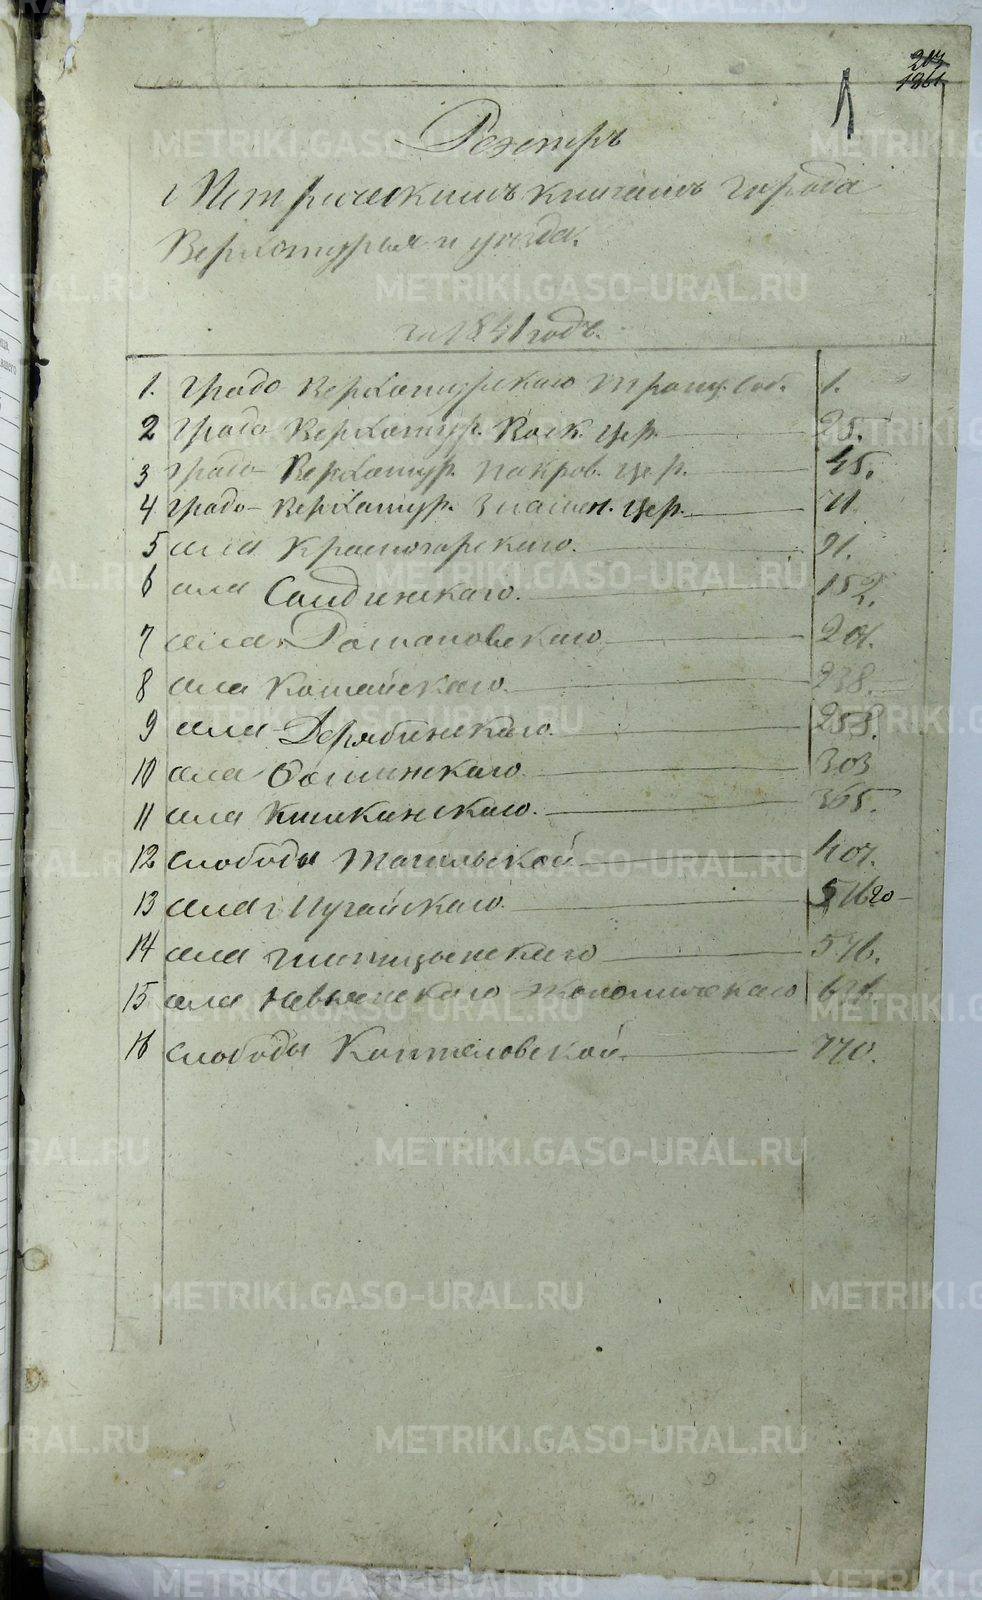 Реэстръ
Метрическимъ книгамъ города
Верхотурья и уезда.
за 1841 годъ.
1. Градо Верхотурскаго Троиц. Соб. 1.
2 Градо Верхотур. Воск. цер. 25.
3 Градо- Верхотур. Покров. цер. 45.
4 Градо- Верхотур. Знамен. цер. 71
5 села Красногорскаго. 91.
6 села Салдинскаго. 152.
7 села Романовскаго 201.
8 села Кошайскаго. 238.
9 села Дерябинскаго. 258.
10 села 303
11 села 365.
12 слободы Тагильской 407.
13 села Мугайскаго
14 села 576.
15 села Невьянскаго экономическаго
16 слободы Коптеловской. 770.
METRIKI.GASO-URAL.RU